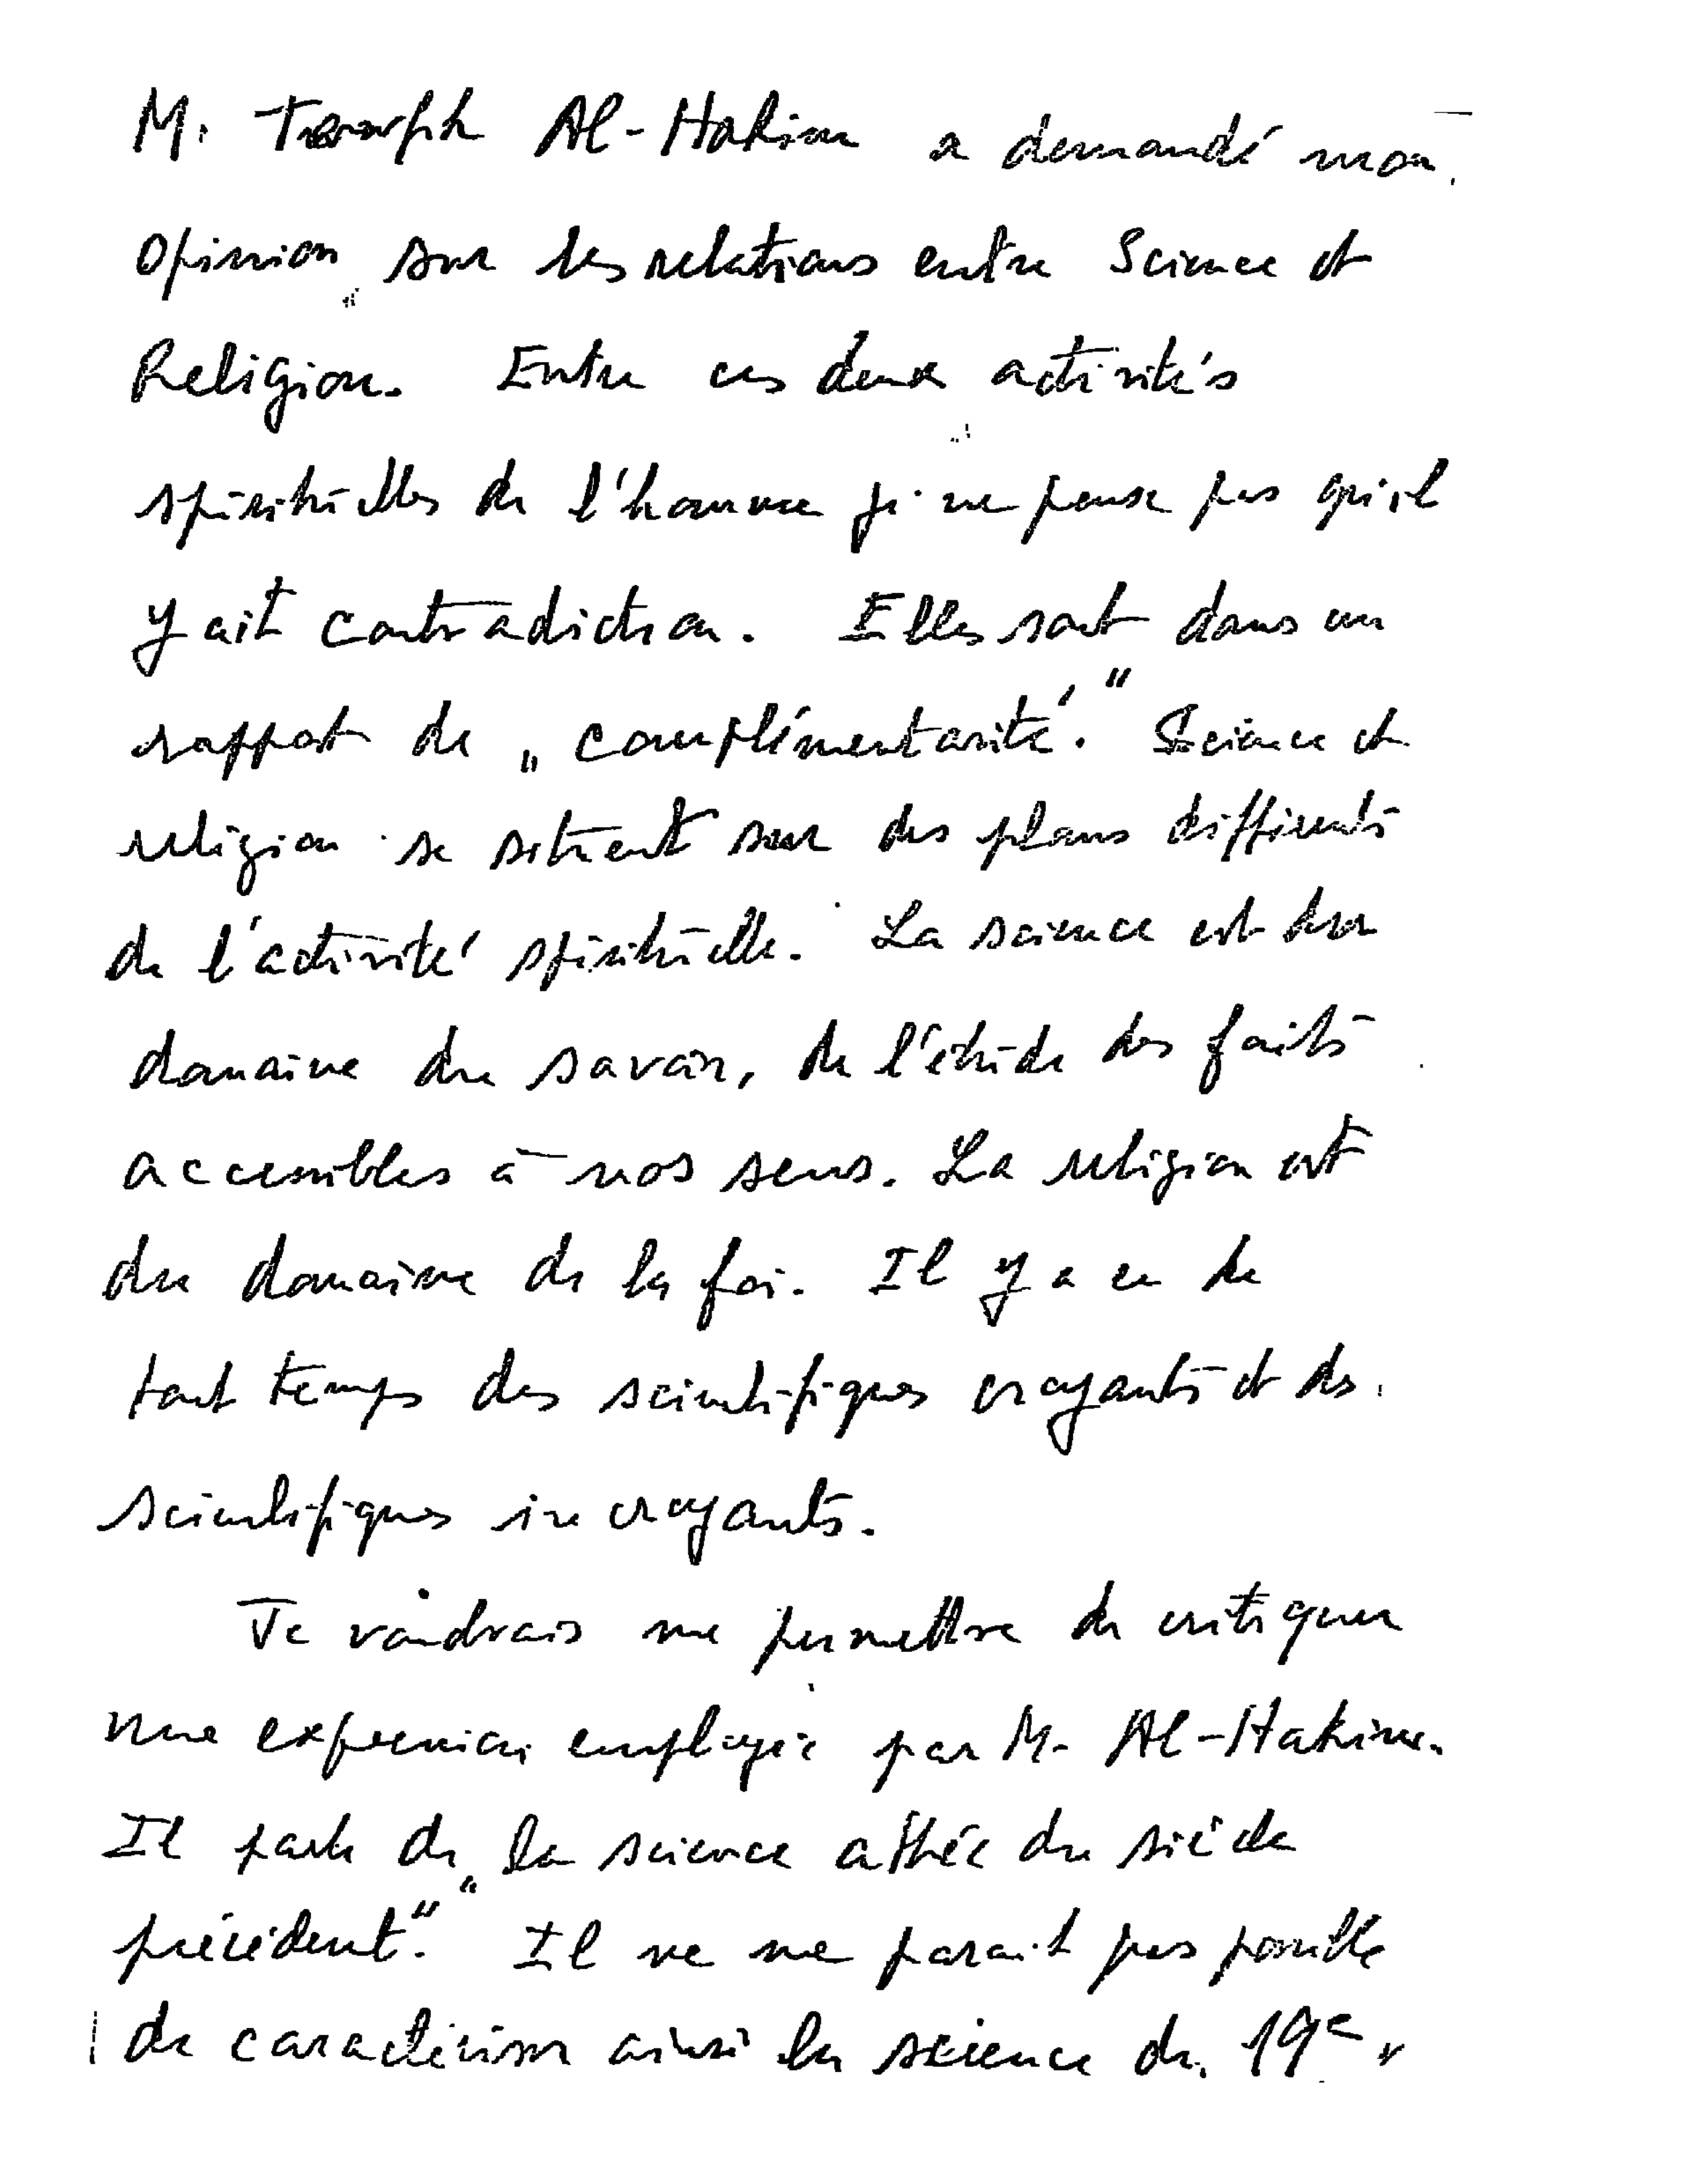 M. Tewfik Al-Hakim a demandé mon
opinion sur les relations entre Science et
Religion. Entre ces deux activités
spirituelles de l'homme je ne pense pas qu'il
y ait contradiction. Elles sont dans un
rapport de „complémentarité." Science et
religion se situent sur des plans différents
de l'activité spirituelle. La science est du
domaine du savoir, de l'étude des faits
accessibles à nos sens. La religion est
du domaine de la foi. Il y a eu de
tout temps des scientifiques croyants et des
scientifiques incroyants.
Je voudrais me permettre de critiquer
une expression employée par M. Al-Hakim.
Il parle de „la science athée du siècle
précédent". Il ne me parait pas possible
de caractériser ainsi la science du 19e